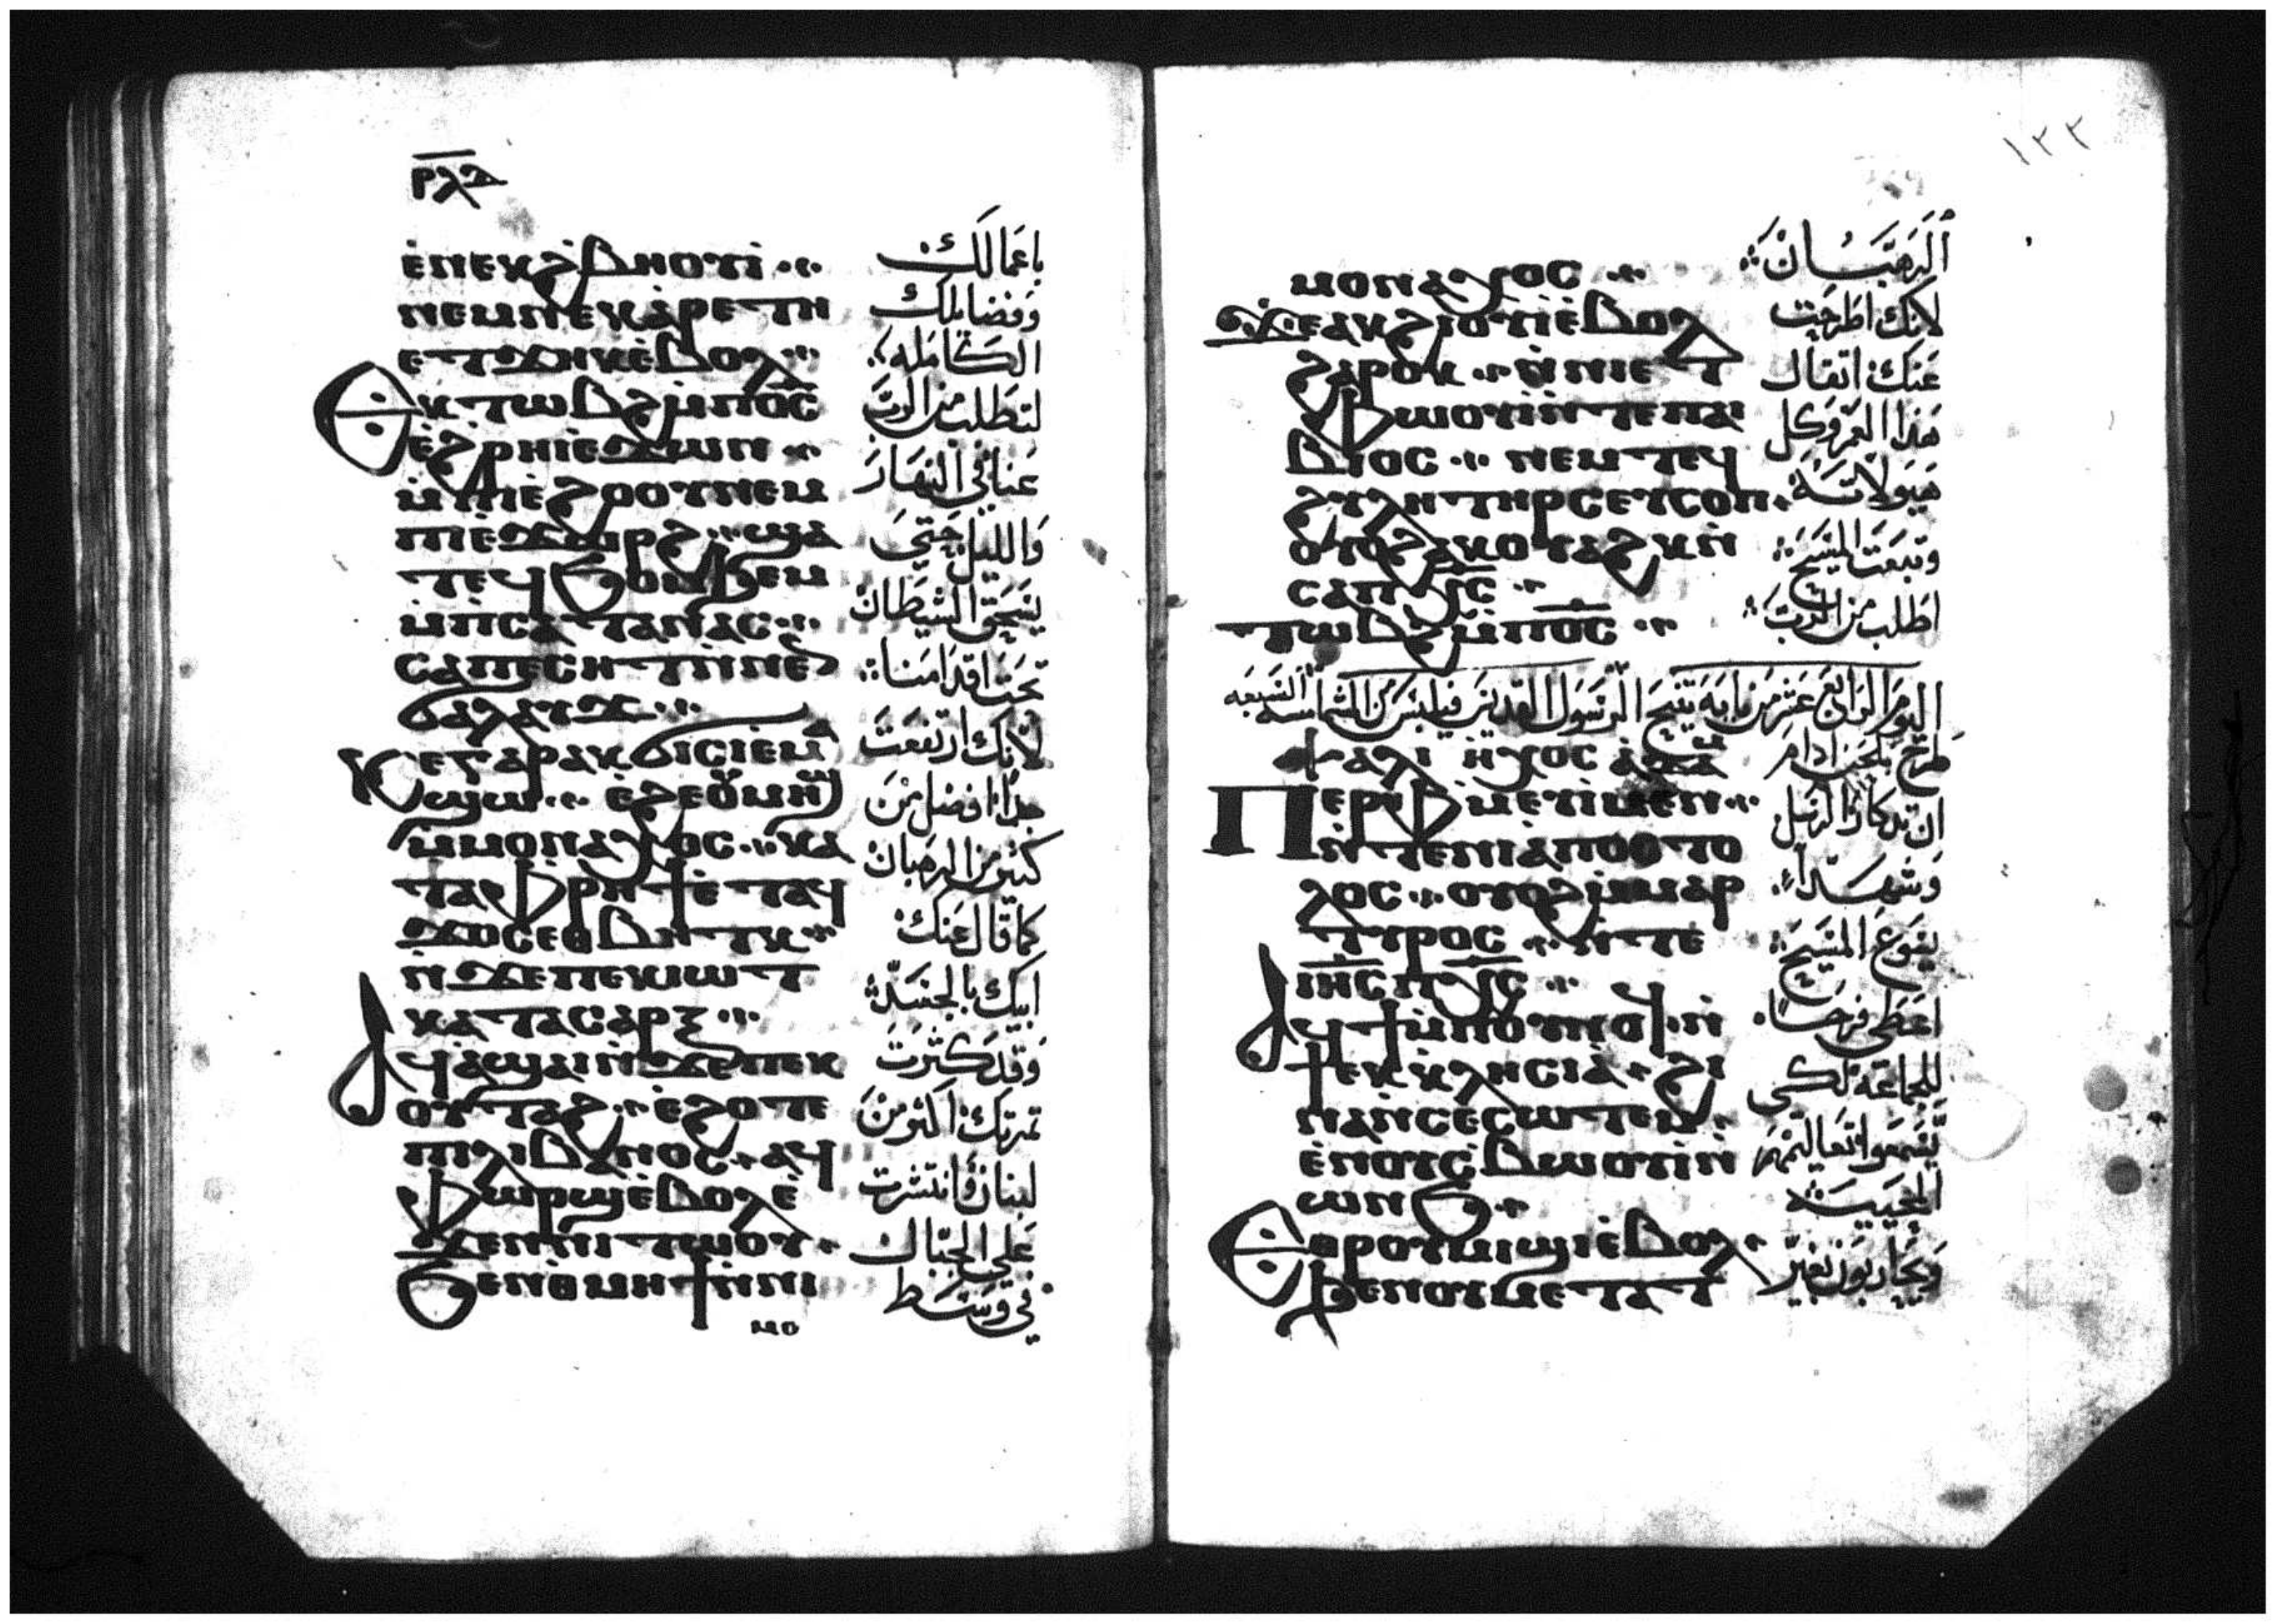 ⲣⲗⲁ
ⲉ̀ⲛⲉⲕϩ̀ⲃⲏⲟⲩⲓ̀
ⲛⲉⲙⲛⲉⲕⲁ̀ⲣⲉⲧⲏ
ⲉⲧϫⲏⲕⲉ̀ⲃⲟⲗ
ⲉⲕⲧⲱⲃϩⲙ̀ⲡⲟ̅ⲥ̅
ⲉ̀ϩ̀ⲣⲏⲓⲉϫⲱⲛ
ⲙ̀ⲡⲓⲉ̀ϩⲟⲟⲩⲛⲉⲙ
ⲡⲓⲉ̀ϫⲱⲣϩ ϣⲁ
ⲧⲉϥϧⲟⲙϧⲉⲙ
ⲙ̀ⲡⲥⲁⲧⲁⲛⲁⲥ
ⲥⲁⲡⲉⲥⲏⲧⲛ̀ⲛⲉⲛ
ϭⲁⲗⲁⲩϫ
ⲕⲉⲅⲁⲣⲁⲕϭⲓⲥⲓⲉ̀ⲙⲁ
ϣⲱ ⲉ̀ϩⲉⲟ̀ⲙⲏϣ
ⲙ̀ⲙⲟⲛⲁⲭⲟⲥ ⲕⲁ
ⲧⲁⲫⲣⲏϯⲉ̀ⲧⲁϥ
ϫⲟⲥⲉⲑⲃⲏⲧⲕ
ⲛ̀ϫⲉⲡⲉⲕⲓⲱⲧ
ⲕⲁⲧⲁⲥⲁⲣⲝ
ⲁϥⲁ̀ϣⲁⲓⲛ̀ϫⲉⲡⲉⲕ
ⲟⲩⲧⲁϩ ⲉ̀ϩⲟⲧⲉ
ⲡⲓⲗⲓⲃⲁⲛⲟⲥ ⲁϥ
ⲫⲱⲣϣⲉ̀ⲃⲟⲗⲉ̀
ϫⲉⲛⲛⲓⲧⲱⲟⲩ
ϧⲉⲛⲑⲙⲏϯⲛ̀ⲛⲓ
ⲙⲟ
باعمالك
وفضايلك
الكامله
لتطلب من الرب
عنا في النهار
والليل حتى
يسحق الشيطان
تحت اقدامنا
لانك ارتفعت
جدا افضل من
كثير من الرهبان
كما قال عنك
ابيك بالجسد
وقد كثرت
ثمرتك اكثر من
لبنان وانتشرت
على الجبال
في وسط
١٢٢
ⲙⲟⲛⲁⲭⲟⲥ
ϫⲉⲁⲕϩⲓⲟⲩⲓⲉ̀ⲃⲟⲗ
ϩⲁⲣⲟⲕ ⲛ̀ⲛⲓⲉⲧ
ⲫⲱⲟⲩⲓⲛ̀ⲧⲉⲡⲁⲓ
ⲃⲓⲟⲥ ⲛⲉⲙⲧⲉϥ
ϩⲩⲗⲏⲧⲏⲣⲥⲉⲩⲥⲟⲡ
ⲟⲩⲟϩⲁⲕⲟⲩⲁϩⲕⲛ̀
ⲥⲁⲡⲭ̅ⲥ̅
ⲧⲱⲃϩⲙ̀ⲡⲟ̅ⲥ̅
الرهبان
لانك اطرحت
عنك اثقال
هذا العمر وكل
هيولاته
وتبعت المسيح
اطلب من الرب
اليوم الرابع عشر من بابه تنيح الرسول القديس فيلبس من الشمامسه السبعه
ⲡⲉⲣⲫⲙⲉⲩⲓⲙⲉⲛ
ⲛ̀ⲧⲉⲛⲓⲁ̀ⲡⲟⲥⲧⲟ
ⲗⲟⲥ ⲟⲩⲟϩⲙ̀ⲙⲁⲣ
ⲧⲩⲣⲟⲥ ⲛ̀ⲧⲉ
ⲓⲏ̅ⲥ̅ⲡⲭ̅ⲥ̅
ⲁϥϯⲙ̀ⲡⲟⲩⲛⲟϥ ⲛ̀
ϯⲉⲕⲕⲗⲏⲥⲓⲁ̀ ϩⲓ
ⲛⲁⲛ̀ⲥⲉⲥⲱⲧⲉⲙ
ⲉ̀ⲛⲟⲩⲥ̀ⲃⲱⲟⲩⲓ̀ⲛ̀
ⲱⲛϧ
ⲉⲩⲣⲟⲩⲙⲓϣⲓⲉ̀ⲃⲟⲗ
ϧⲉⲛⲟⲩⲙⲉⲧⲁⲧ
طرح بلحن ادام
ان تذكار الرسل
وشهداء
يسوع المسيح
اعطى فرحا
للجماعه لكي
يسمعوا تعاليمهم
المحييه
ويحاربون بغير